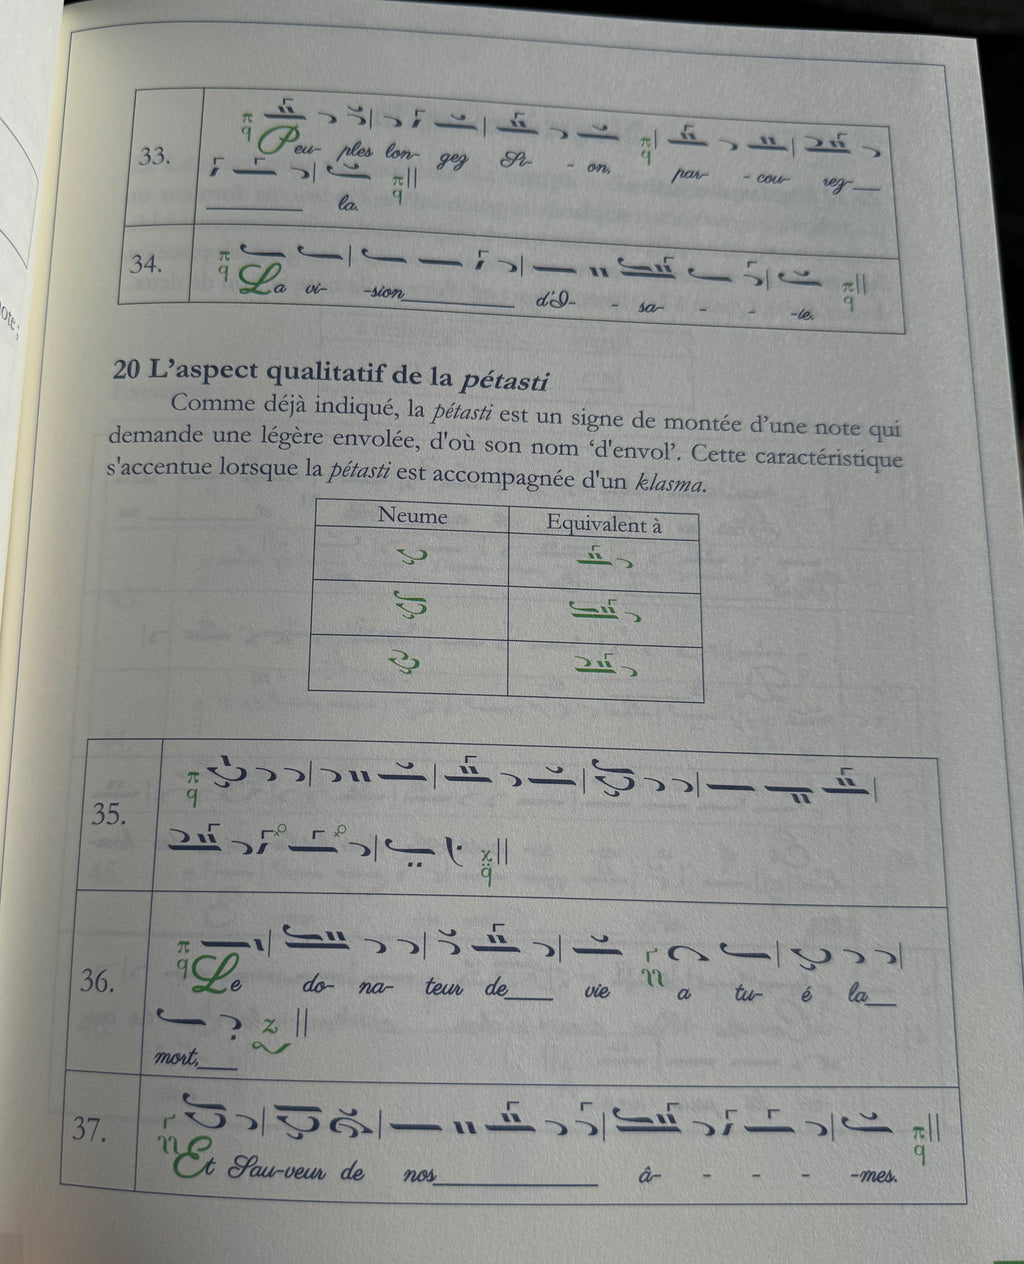 33.
π
q
Peu- ples lon- gez Si- - on. π q par- - cou- rez___
________ la. π q
34.
π
q
La vi- -sion________ d'I- - sa- - - -ie. π q
20 L'aspect qualitatif de la pétasti
Comme déjà indiqué, la pétasti est un signe de montée d'une note qui
demande une légère envolée, d'où son nom ‘d'envol’. Cette caractéristique
s'accentue lorsque la pétasti est accompagnée d'un klasma.
Neume Equivalent à
35.
π
q
36.
π
q
Le do- na- teur de___ vie a tu- é la___
mort,___
37.
Et Sau-veur de nos____________ â- - - - -mes.
π
q
ote ;